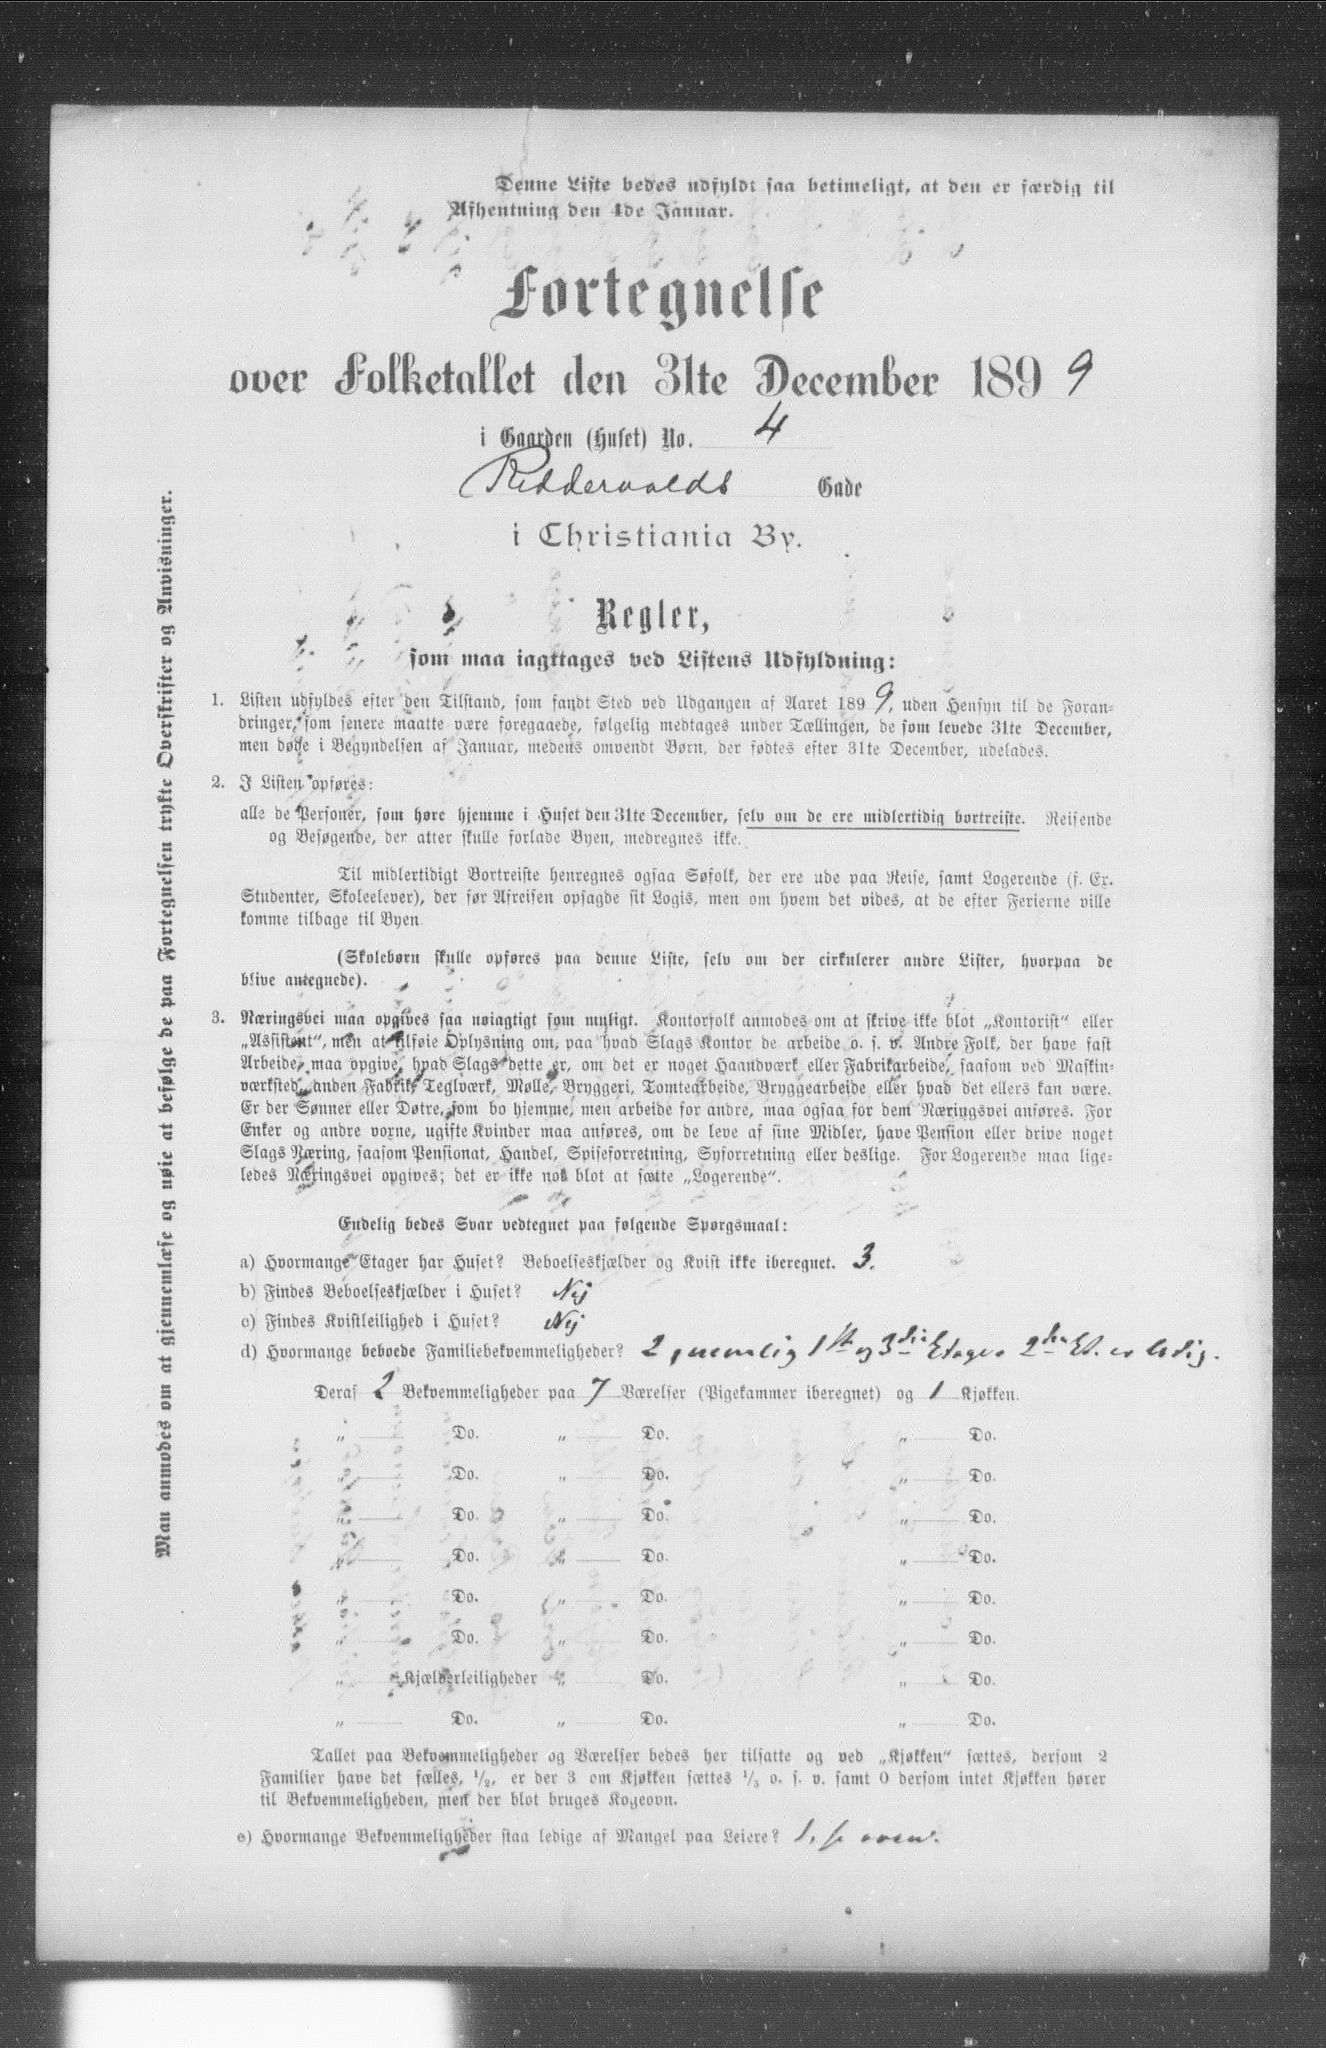 Denne Liste bedes udfyldt saa betimeligt, at den er færdig til
Afhentning den 4de Januar.
Fortegnelse
over Folketallet den 31te December 1899
i Gaarden (Huset) No. 4
Riddervolds Gade
i Christiania By.
Regler,
som maa iagttages ved Listens Udfyldning:
1. Listen udfyldes efter den Tilstand, som fandt Sted ved Udgangen af Aaret 1899, uden Hensyn til de Foran-
dringer, som senere maatte være foregaaede, følgelig medtages under Tællingen, de som levede 31te December,
men døde i Begyndelsen af Januar, medens omvendt Børn, der fødtes efter 31te December, udelades.
2. I Listen opføres:
alle de Personer, som høre hjemme i Huset den 31te December, selv om de ere midlertidig bortreiste. Reisende
og Besøgende, der atter skulle forlade Byen, medregnes ikke.
Til midlertidigt Bortreiste henregnes ogsaa Søfolk, der ere ude paa Reise, samt Logerende (f. Ex.
Studenter, Skoleelever), der før Afreisen opsagde sit Logis, men om hvem det vides, at de efter Ferierne ville
komme tilbage til Byen.
(Skolebørn skulle opføres paa denne Liste, selv om der cirkulerer andre Lister, hvorpaa de
blive antegnede).
3. Næringsvei maa opgives saa nøiagtigt som muligt. Kontorfolk anmodes om at skrive ikke blot „Kontorist“ eller
„Assistent“, men at tilføie Oplysning om, paa hvad Slags Kontor de arbeide o. s. v. Andre Folk, der have fast
Arbeide, maa opgive, hvad Slags dette er, om det er noget Haandværk eller Fabrikarbeide, saasom ved Maskin-
værksted, anden Fabrik, Teglværk, Mølle, Bryggeri, Tomtearbeide, Bryggearbeide eller hvad det ellers kan være.
Er der Sønner eller Døtre, som bo hjemme, men arbeide for andre, maa ogsaa for dem Næringsvei anføres. For
Enker og andre voxne, ugifte Kvinder maa anføres, om de leve af sine Midler, have Pension eller drive noget
Slags Næring, saasom Pensionat, Handel, Spiseforretning, Syforretning eller deslige. For Logerende maa lige-
ledes Næringsvei opgives; det er ikke nok blot at sætte „Logerende“.
Endelig bedes Svar vedtegnet paa følgende Spørgsmaal:
a) Hvormange Etager har Huset? Beboelseskjælder og Kvist ikke iberegnet. 3.
b) Findes Beboelseskjælder i Huset? Nej
c) Findes Kvistleilighed i Huset? Nej
d) Hvormange beboede Familiebekvemmeligheder? 2, nemlig 1ste og 3die Etage. 2den Et. er ledig.
Deraf 2 Bekvemmeligheder paa 7 Værelser (Pigekammer iberegnet) og 1 Kjøkken.
„ Do. „ Do. „ Do.
„ Do. „ Do. „ Do.
„ Do. „ Do. „ Do.
„ Do. „ Do. „ Do.
„ Do. „ Do. „ Do.
„ Do. „ Do. „ Do.
„ Kjælderleiligheder „ Do. „ Do.
„ Do. „ Do. „ Do.
Tallet paa Bekvemmeligheder og Værelser bedes her tilsatte og ved „Kjøkken“ sættes, dersom 2
Familier have det fælles, 1/2, er der 3 om Kjøkken sættes 1/3 o. s. v. samt 0 dersom intet Kjøkken hører
til Bekvemmeligheden, men der blot bruges Kogeovn.
e) Hvormange Bekvemmeligheder staa ledige af Mangel paa Leiere? 1, se oven.
Man anmodes om at gjennemlæse og nøie at befølge de paa Fortegnelsen trykte Overskrifter og Anvisninger.